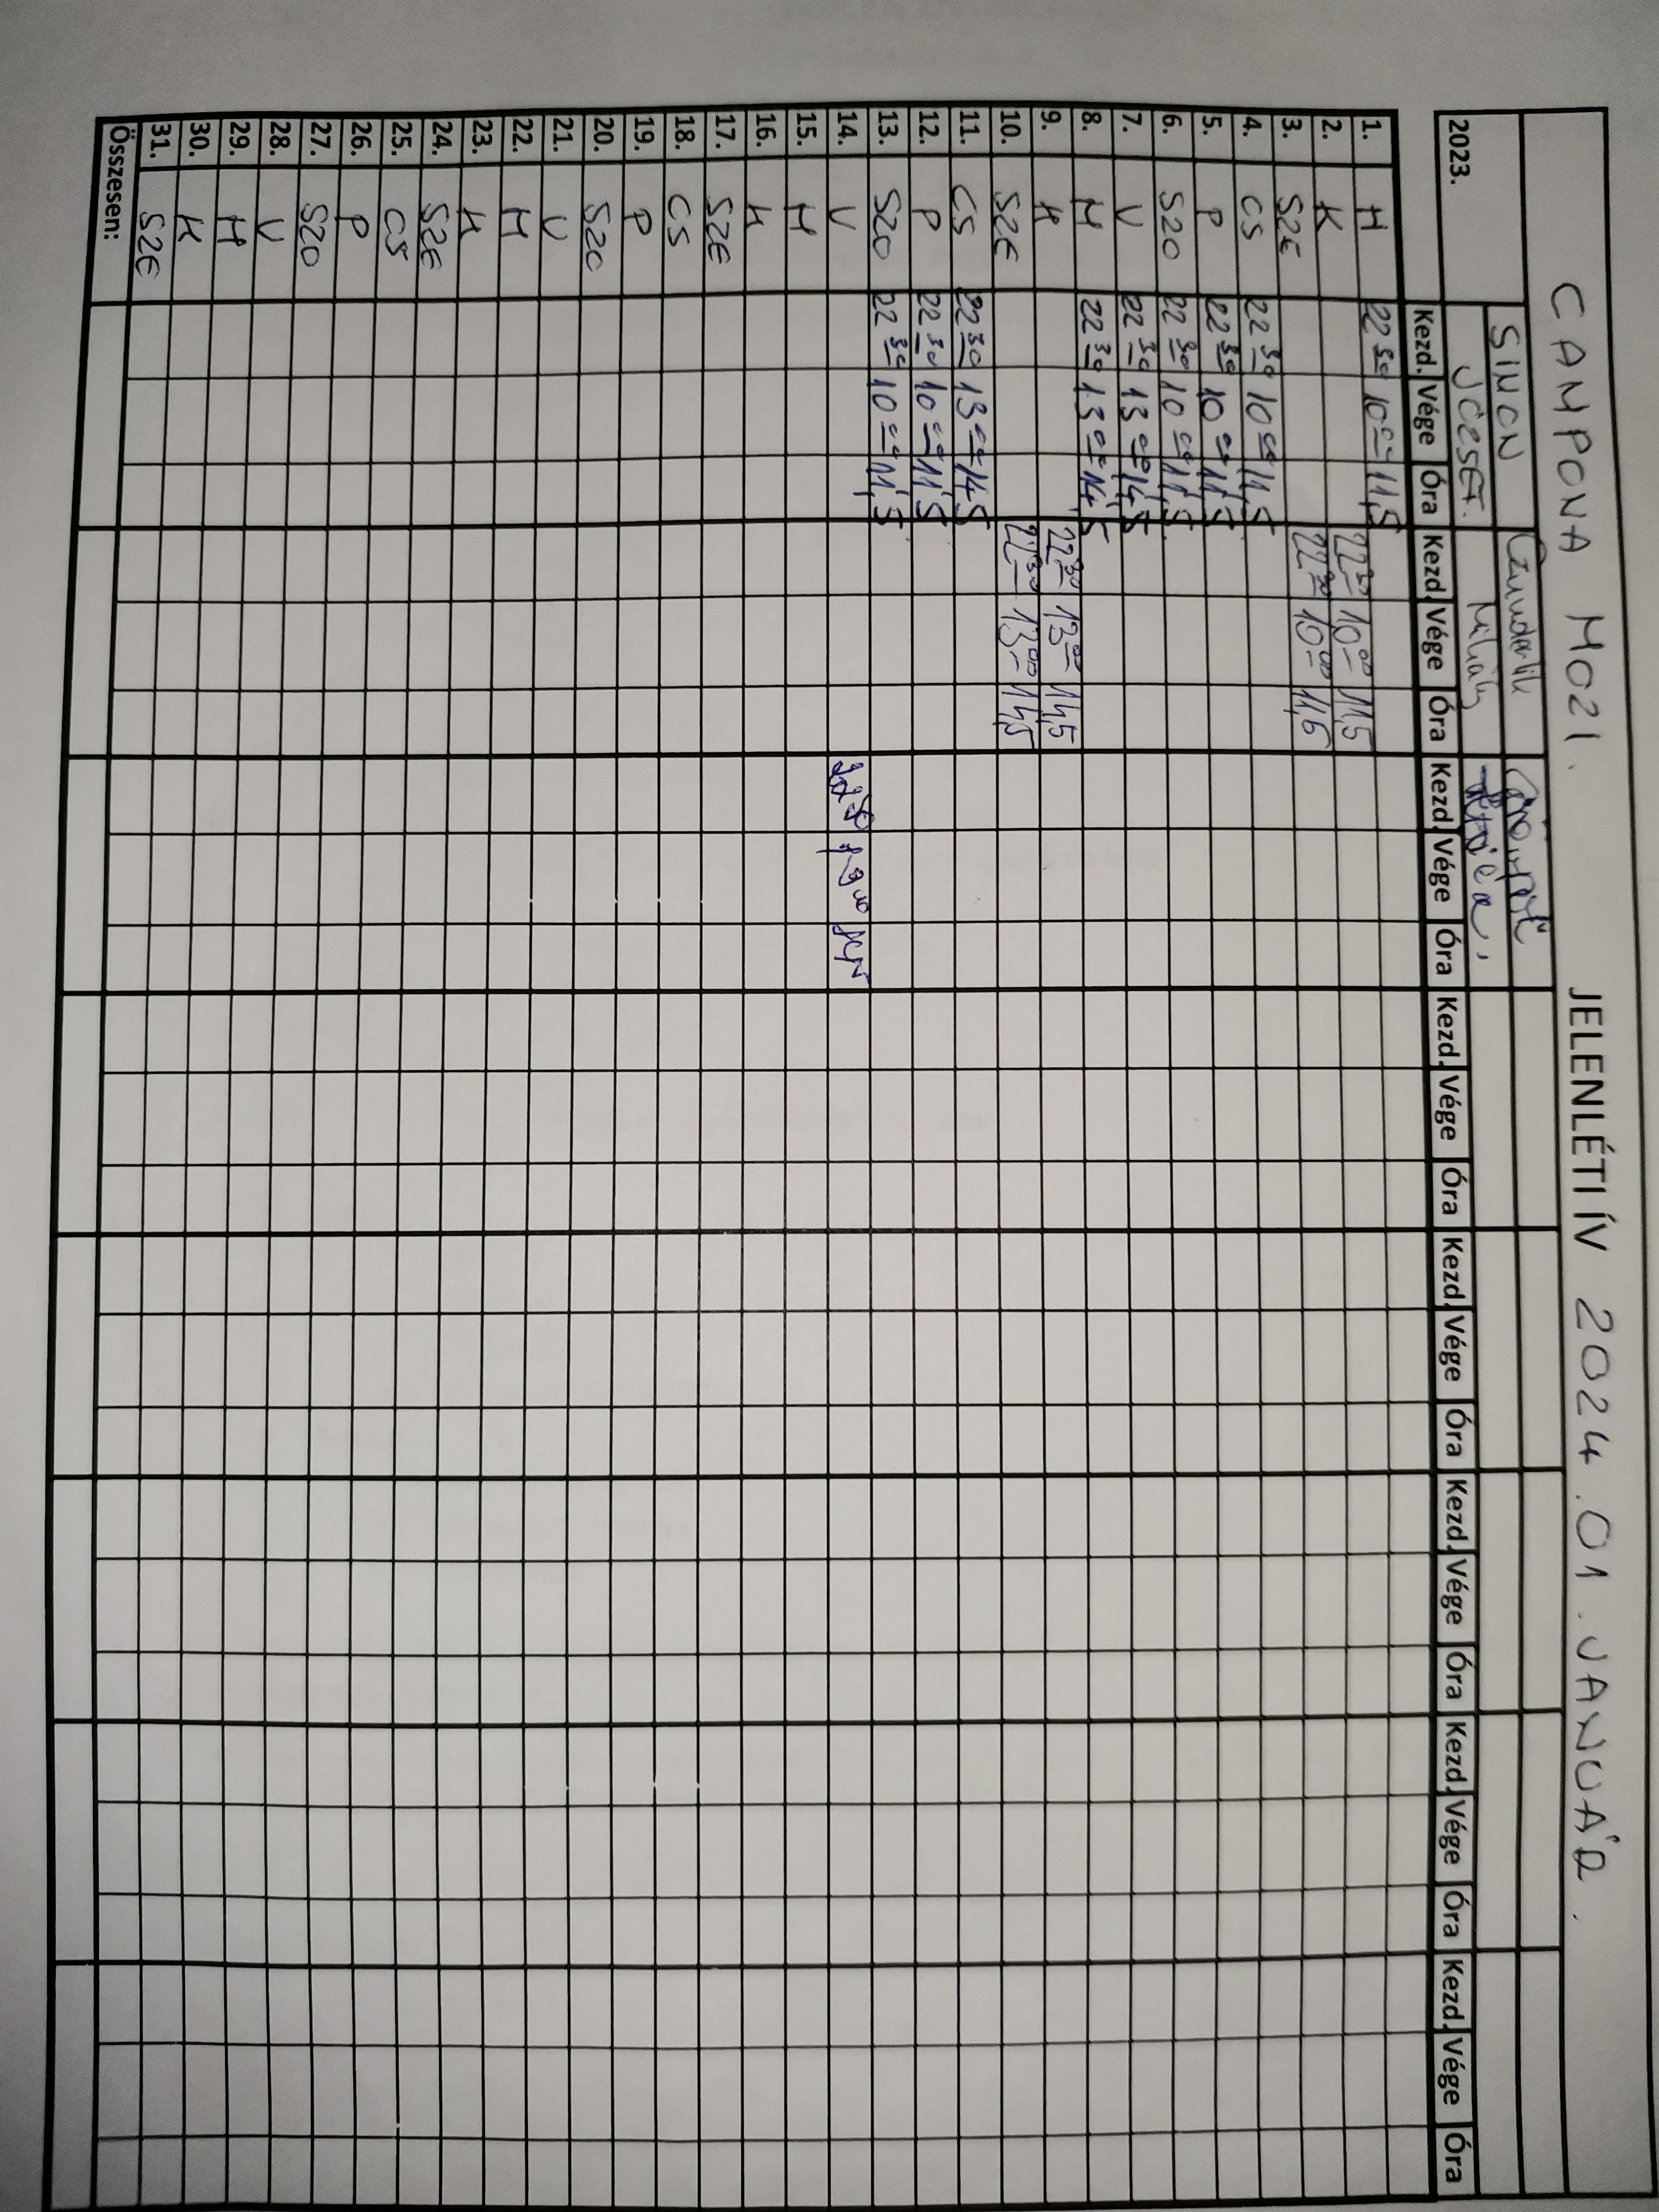 CAMPONA MOZI. JELENLÉTI ÍV 2024.01.JANUÁR.
2023. SIMON JÓZSEF. Mihály
Kezd. Vége Óra Kezd. Vége Óra Kezd. Vége Óra Kezd. Vége Óra Kezd. Vége Óra Kezd. Vége Óra Kezd. Vége Óra Kezd. Vége Óra
1. H 22 30 10 00 11,5
2. K 22 30 10 00 11,5
3. SZE 22 30 10 00 11,5
4. CS 22 30 10 00 11,5
5. P 22 30 10 00 11,5
6. SZO 22 30 10 00 11,5
7. V 22 30 13 00 14,5
8. H 22 30 13 00 14,5
9. K 22 30 13 00 14,5
10. SZE 22 30 13 00 14,5
11. CS 22 30 13 00 14,5
12. P 22 30 10 00 11,5
13. SZO 22 30 10 00 11,5
14. V
15. H
16. K
17. SZE
18. CS
19. P
20. SZO
21. V
22. H
23. K
24. SZE
25. CS
26. P
27. SZO
28. V
29. H
30. K
31. SZE
Összesen: